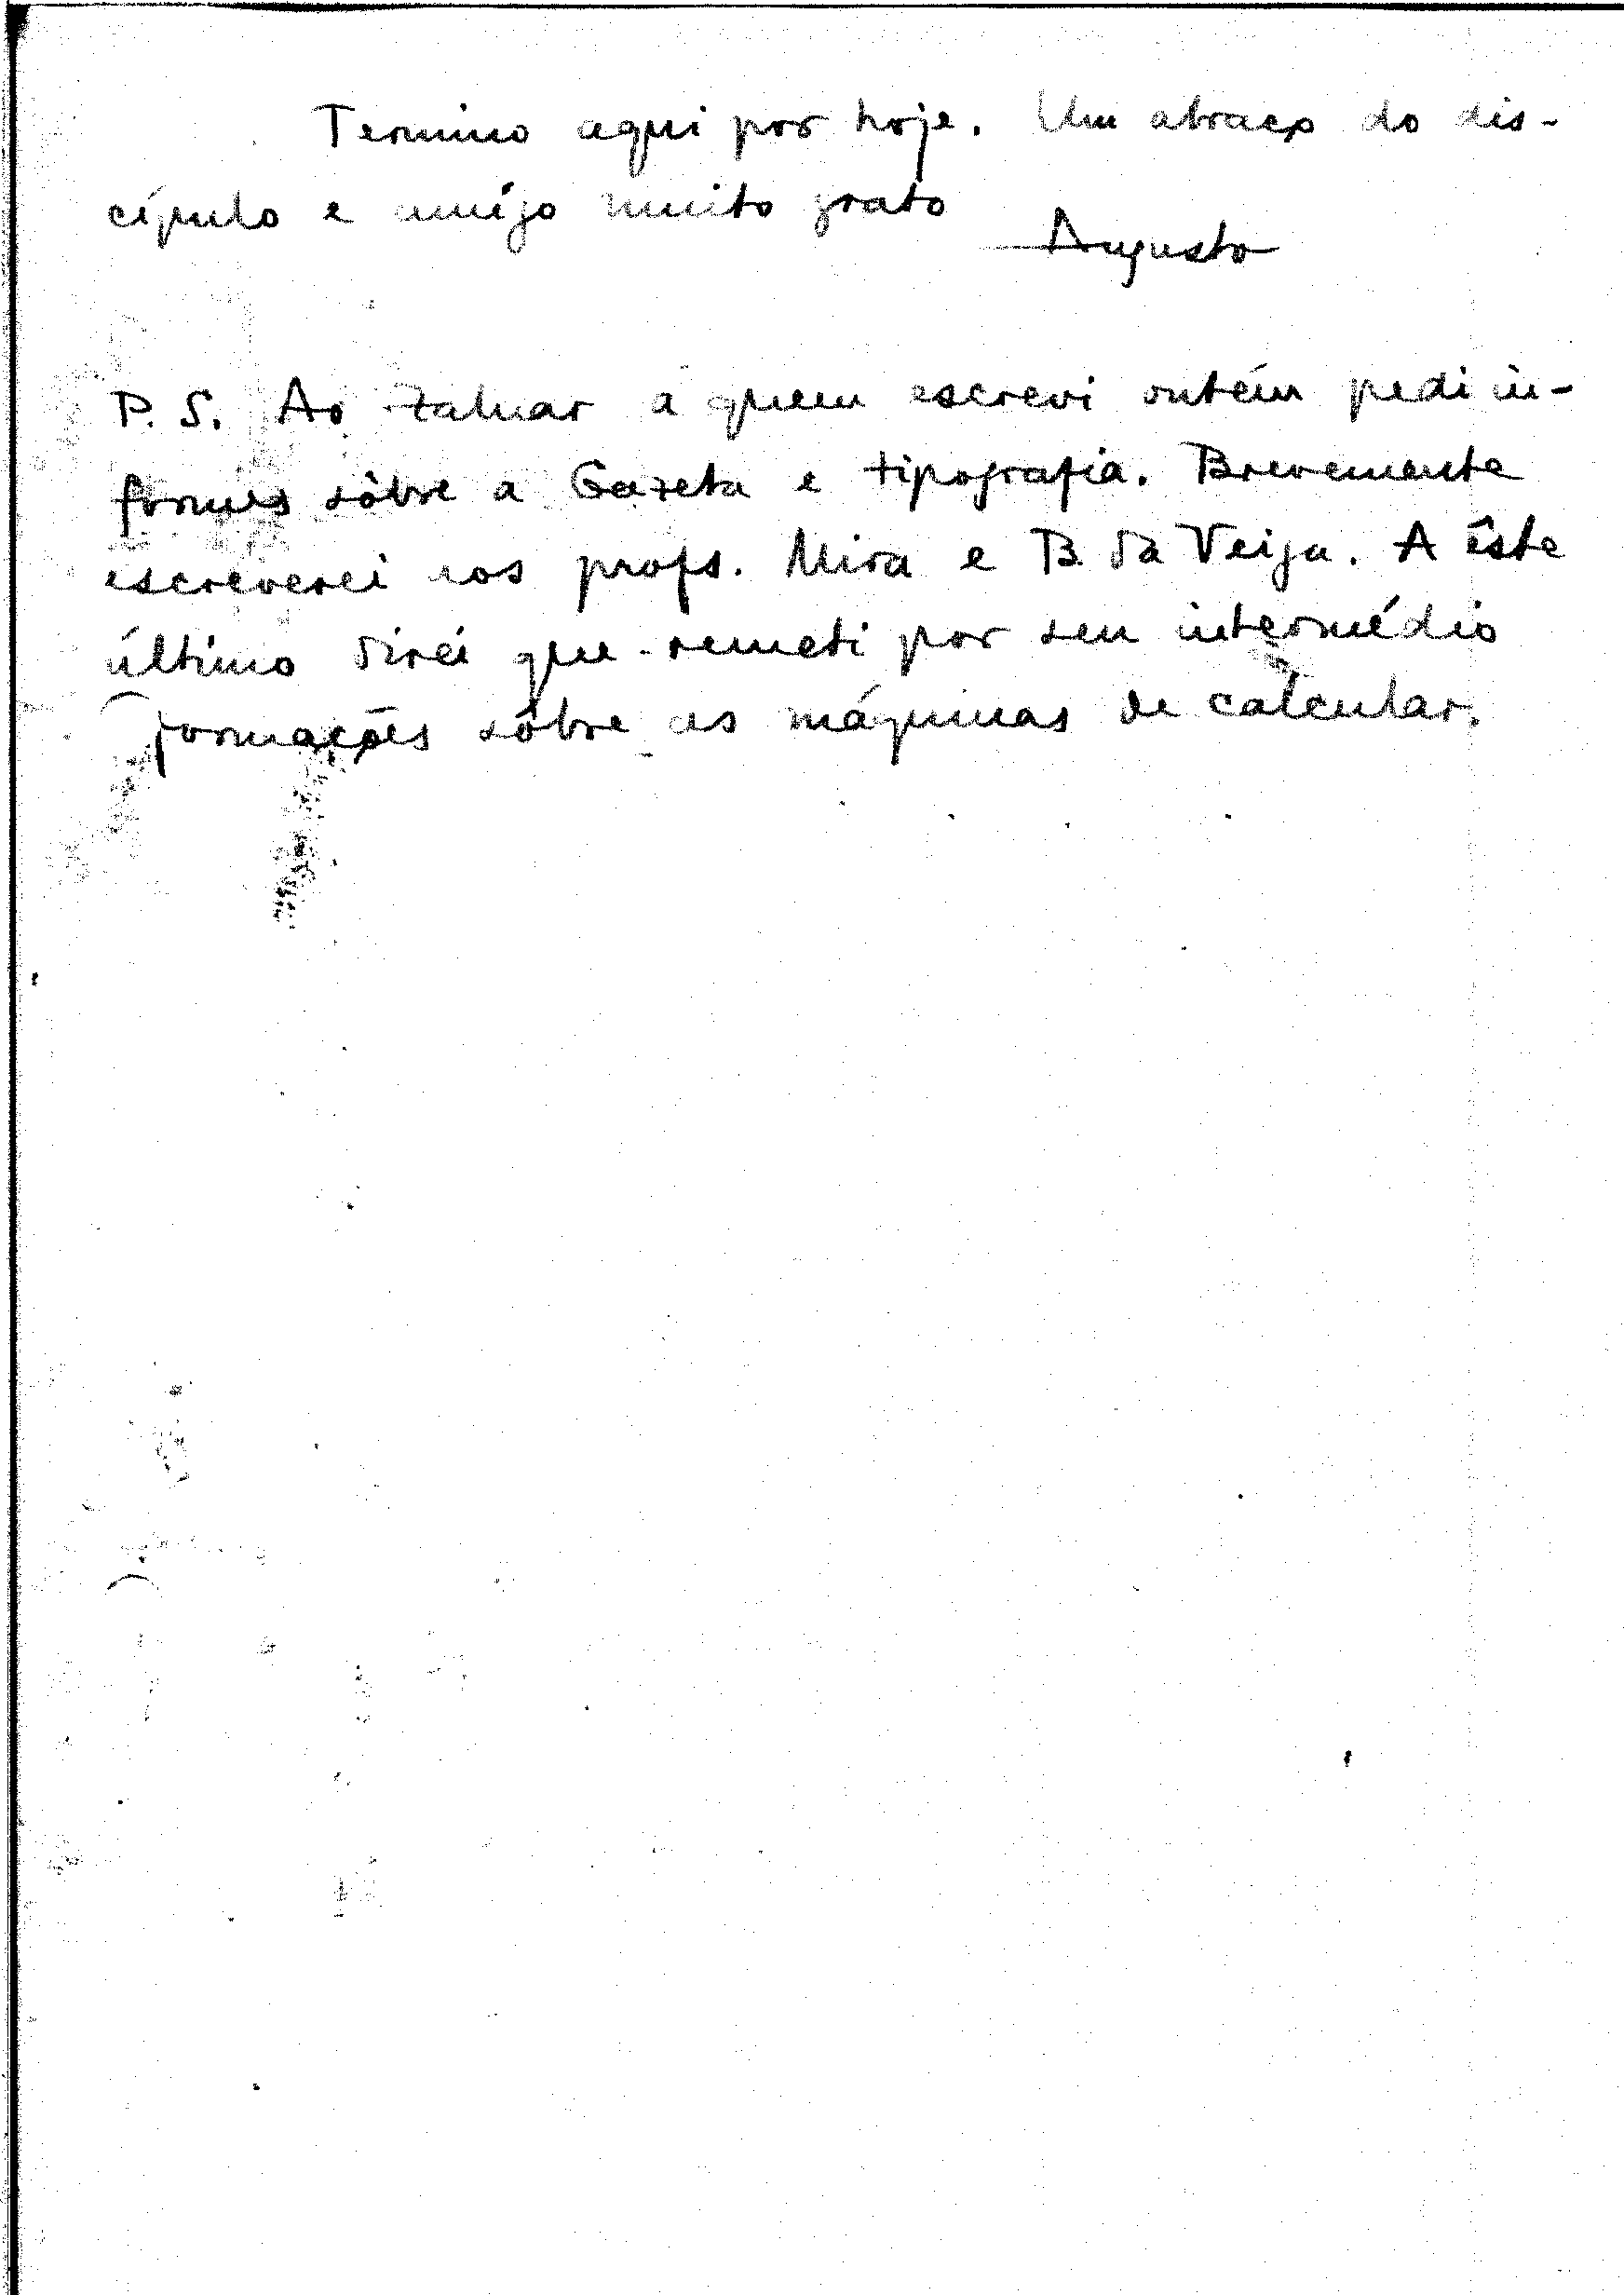 Termino aqui por hoje. Um abraço do dis-
cípulo e amigo muito grato
Augusto
P. S. Ao Zaluar a quem escrevi ontém pedi in-
formes sôbre a Gazeta e tipografia. Brevemente
escreverei aos profs. Mira e B. da Veiga. A êste
último direi que remeti por seu intermédio
formações sôbre as máquinas de calcular.